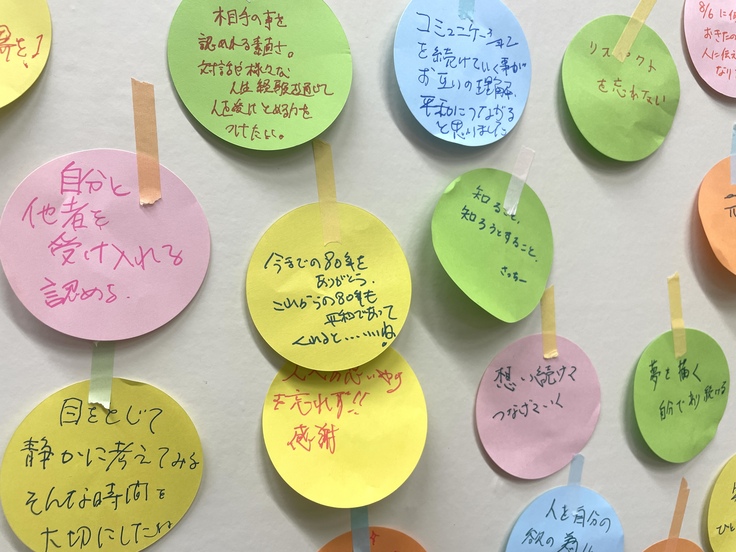 相手の事を
認めれる素直さ。
対話や様々な
人生経験を通して
人を受けとめる力を
つけたい。
コミュニケーション
を続けていく事が
お互いの理解、
平和につながる
と思いました
リスペクト
を忘れない
8/6に
おきた
人に伝え
自分と
他者を
受け入れる
認める。
今までの80年を
ありがとう。
これからの80年も
平和であって
くれると……いいね!
知ること、
知ろうとすること。
さっちー
人への思いやり
を忘れず!!
感謝
想い続けて
つなげていく
夢を描く
自分であり続ける
目をとじて
静かに考えてみる
そんな時間を
大切にしたい
人を自分の
欲の為に